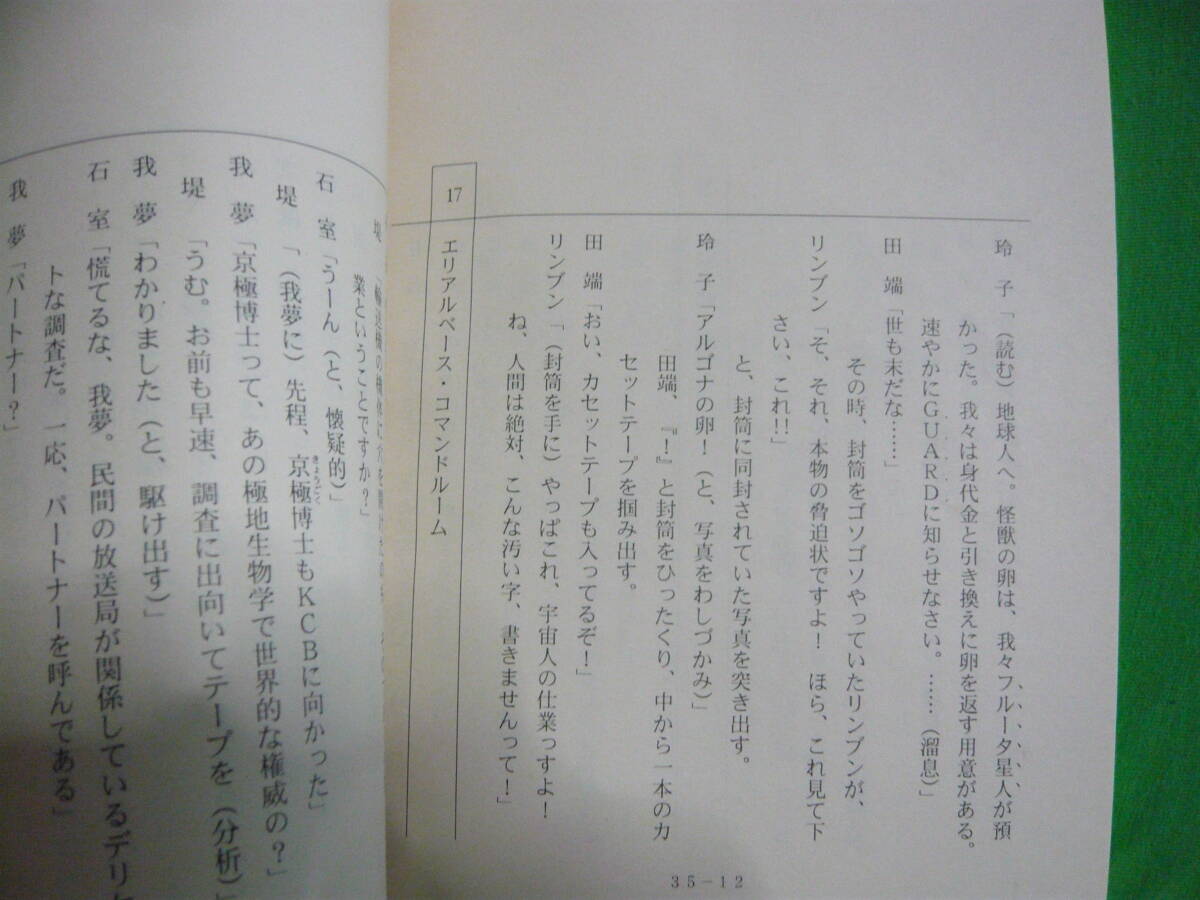 玲子「(読む)地球人へ。怪獣の卵は、我々フルータ星人が預
かった。我々は身代金と引き換えに卵を返す用意がある。
速やかにGUARDに知らせなさい。……(溜息)」
田端「世も末だな……」
その時、封筒をゴソゴソやっていたリンブンが、
リンブン「そ、それ、本物の脅迫状ですよ! ほら、これ見て下
さい、これ!!」
と、封筒に同封されていた写真を突き出す。
玲子「アルゴナの卵!(と、写真をわしづかみ)」
田端、『!』と封筒をひったくり、中から一本のカ
セットテープを掴み出す。
田端「おい、カセットテープも入ってるぞ!」
リンブン「(封筒を手に)やっぱこれ、宇宙人の仕業っすよ!
ね、人間は絶対、こんな汚い字、書きませんって!」
17 エリアルベース・コマンドルーム
35-12
堤
業ということですか?」
石室「うーん(と、懐疑的)」
堤「(我夢に)先程、京極博士もKCBに向かった」
きょうごく
我夢「京極博士って、あの極地生物学で世界的な権威の?」
堤「うむ。お前も早速、調査に出向いてテープを(分析)」
我夢「わかりました(と、駆け出す)」
石室「慌てるな、我夢。民間の放送局が関係しているデリケ
トな調査だ。一応、パートナーを呼んである」
我夢「パートナー?」